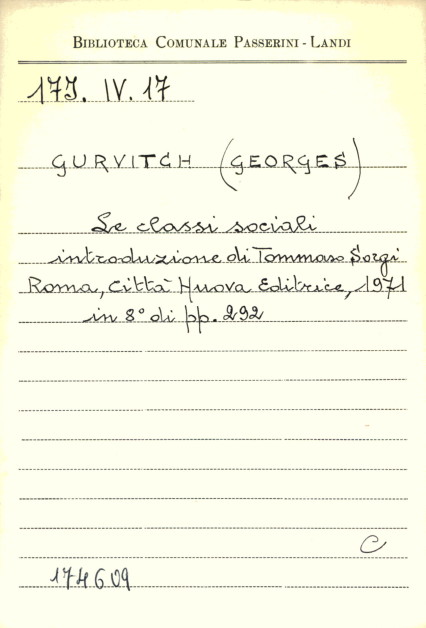 BIBLIOTECA COMUNALE PASSERINI - LANDI
17J. IV. 17
GURVITCH (GEORGES)
Le classi sociali
introduzione di Tommaso Sorgi
Roma, Città Nuova Editrice, 1971
in 8° di pp. 292
C
174609